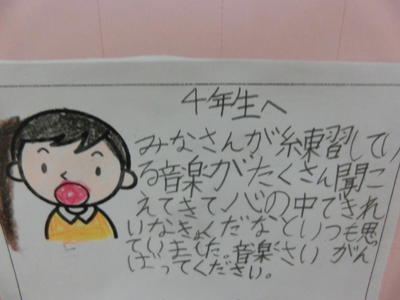 4年生へ
みなさんが練習してい
る音楽がたくさん聞こ
えてきて心の中できれ
いなきょくだなといつも思っ
ていました。音楽さいがん
ばってください。